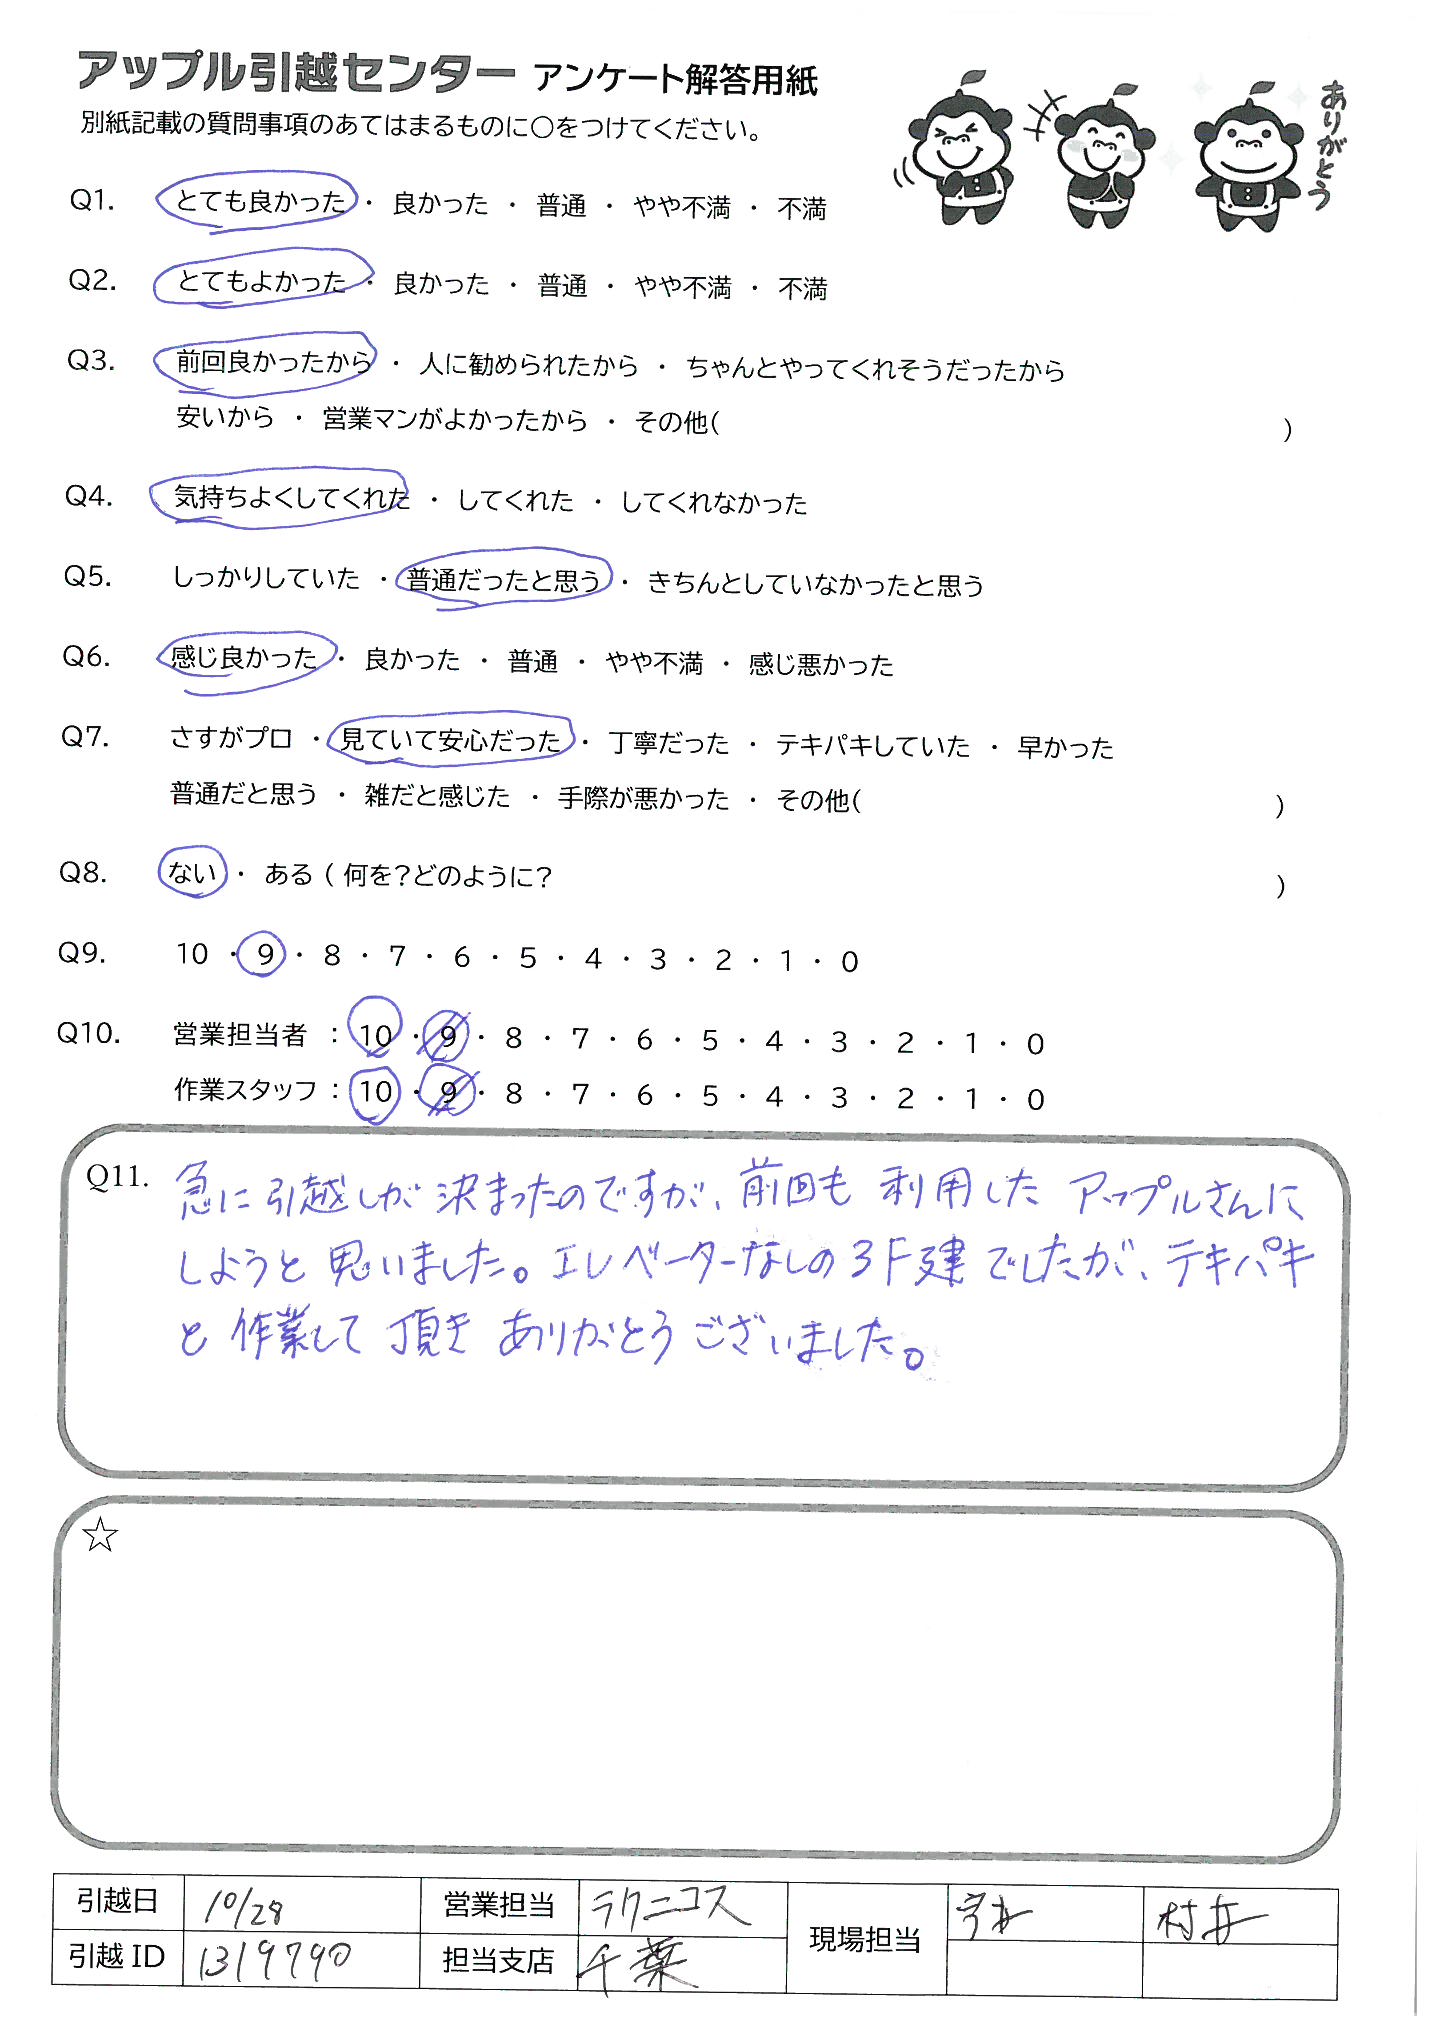 アップル引越センター アンケート解答用紙
別紙記載の質問事項のあてはまるものに○をつけてください。
ありがとう
Q1. とても良かった ・ 良かった ・ 普通 ・ やや不満 ・ 不満
Q2. とてもよかった ・ 良かった ・ 普通 ・ やや不満 ・ 不満
Q3. 前回良かったから ・ 人に勧められたから ・ ちゃんとやってくれそうだったから
安いから ・ 営業マンがよかったから ・ その他( )
Q4. 気持ちよくしてくれた ・ してくれた ・ してくれなかった
Q5. しっかりしていた ・ 普通だったと思う ・ きちんとしていなかったと思う
Q6. 感じ良かった ・ 良かった ・ 普通 ・ やや不満 ・ 感じ悪かった
Q7. さすがプロ ・ 見ていて安心だった ・ 丁寧だった ・ テキパキしていた ・ 早かった
普通だと思う ・ 雑だと感じた ・ 手際が悪かった ・ その他( )
Q8. ない ・ ある ( 何を?どのように? )
Q9. 10 ・ 9 ・ 8 ・ 7 ・ 6 ・ 5 ・ 4 ・ 3 ・ 2 ・ 1 ・ 0
Q10. 営業担当者 : 10 ・ 9 ・ 8 ・ 7 ・ 6 ・ 5 ・ 4 ・ 3 ・ 2 ・ 1 ・ 0
作業スタッフ : 10 ・ 9 ・ 8 ・ 7 ・ 6 ・ 5 ・ 4 ・ 3 ・ 2 ・ 1 ・ 0
Q11. 急に引越しが決まったのですが、前回も利用したアップルさんに
しようと思いました。エレベーターなしの3F建でしたが、テキパキ
と作業して頂きありがとうございました。
☆
引越日 10/28 営業担当 ラクニコス 現場担当 村井
引越ID 1319790 担当支店 千葉